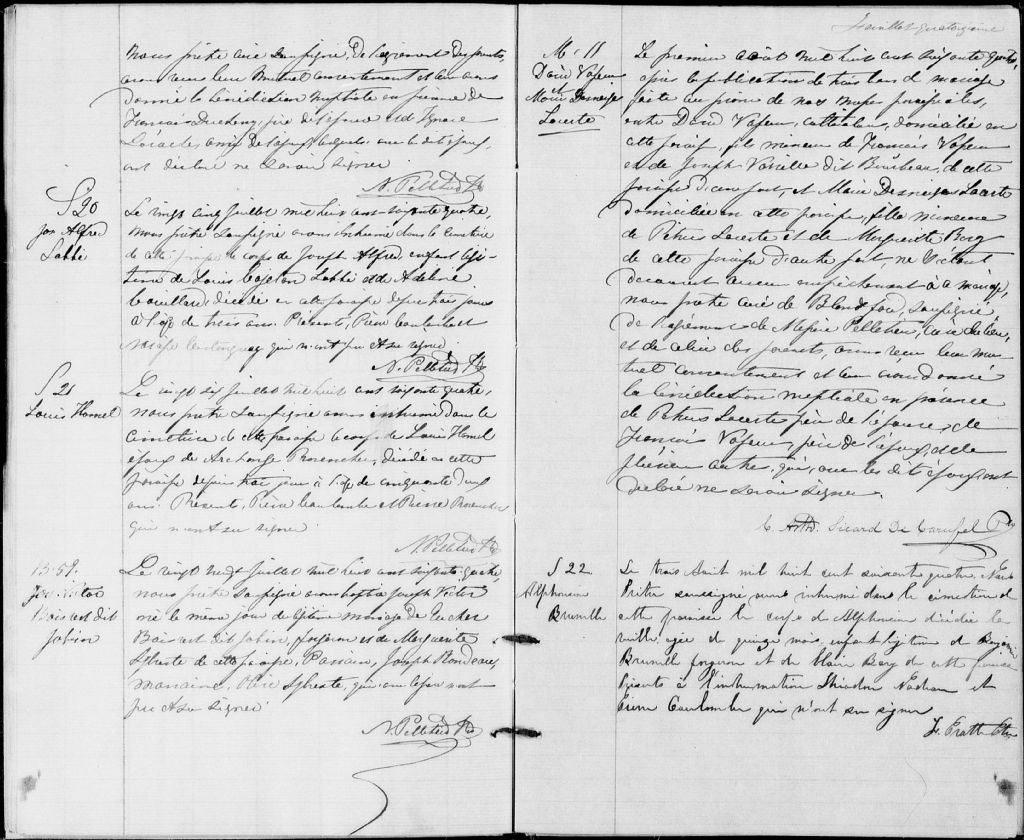 nous prêtre curé soussigné, de l'agrément des parents,
avons reçu leur mutuel consentement et leur avons
donné la bénédiction nuptiale en présence de
François père de l'épouse et d'Ignace
ami de l'époux lesquels avec le dit époux,
ont déclaré ne savoir signer
N. Pelletier Ptre
S 20
Jos Alfred
Labbé
Le vingt cinq juillet mil huit cent soixante quatre,
nous prêtre soussigné avons inhumé dans le cimetière
de cette paroisse le corps de Joseph Alfred, enfant légi-
time de Louis Labbé et de Adeline
décédé en cette paroisse depuis trois jours
à l'âge de trois ans. Présents, Pierre Coulombe et
qui n'ont pu et su signer
N. Pelletier Ptre
S 21
Louis Hamel
Le vingt six juillet mil huit cent soixante quatre,
nous prêtre soussigné avons inhumé dans le
cimetière de cette paroisse le corps de Louis Hamel
époux de Archange décédé en cette
paroisse depuis trois jours à l'âge de cinquante
ans. Présents, Pierre Coulombe et Pierre
qui n'ont su signer
N. Pelletier Ptre
B. 59.
Jos. Victor
Boisvert dit
Jobin
Le vingt neuf juillet mil huit cent soixante quatre
nous prêtre soussigné avons baptisé Joseph Victor
né le même jour du légitime mariage de
Boisvert dit Jobin, forgeron et de Marguerite
Sylvestre de cette paroisse, Parrain, Joseph Rondeau,
marraine, Sylvestre, qui avec le père n'ont
pu et su signer
N. Pelletier Ptre
Feuillet quatorzième
M. 11
David Vasseur
et
Marie Desneiges
Lacerte
Le premier août mil huit cent soixante quatre,
après la publication de trois bans de mariage
faite au prône de nos messes paroissiales,
entre David Vasseur, cultivateur, domicilié en
cette paroisse, fils mineur de François Vasseur
et de Joseph dit de cette
paroisse d'une part, et Marie Desneiges Lacerte
domiciliée en cette paroisse, fille mineure
de Petrus Lacerte et de Marguerite Berg
de cette paroisse d'autre part, ne s'étant
découvert aucun empêchement à ce mariage,
nous prêtre curé de soussigné,
de l'agrément de Messire Pelletier, curé du lieu,
et de celui des parents, avons reçu leur mu-
tuel consentement et leur avons donné
la bénédiction nuptiale en présence
de Petrus Lacerte père de l'épouse, de
François Vasseur, père de l'époux, et de
plusieurs autres, qui, avec les dits époux ont
déclaré ne savoir signer.
L. Arth. Sicard De Carufel Ptre
S 22
Alphonsine
Brunelle
Le trois Août mil huit cent soixante quatre, Nous
Prêtre soussigné avons inhumé dans le cimetière de
cette paroisse le corps d'Alphonsine décédée la
veille, agée de quinze mois, enfant légitime de
Brunelle forgeron et de Marie Berg de cette paroisse
Présents à l'inhumation et
Pierre Coulombe qui n'ont su signer
Z. Pratte Ptre